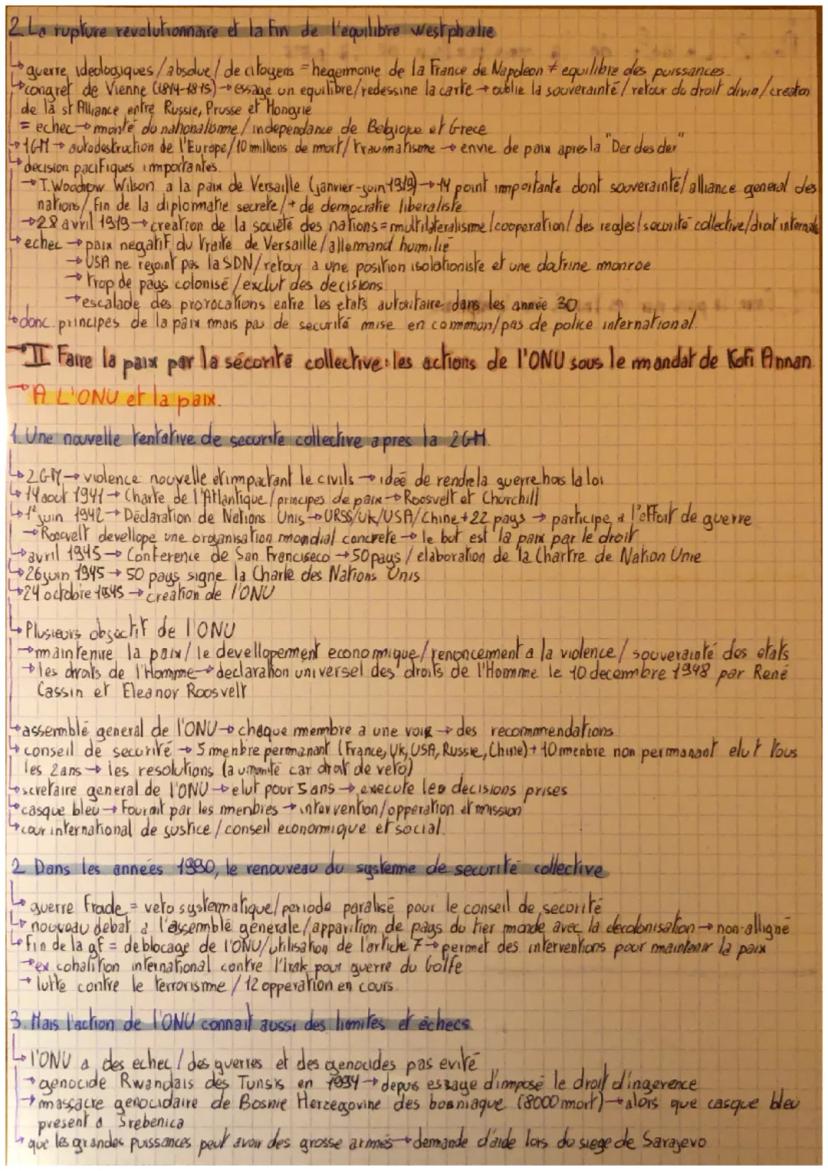 2. La rupture revolutionnaire et la fin de l'equilibre westphalie
↳ guerre ideologiques/absolue/de citoyens = hegemonie de la France de Napoleon ≠ equilibre des puissances
↳ congret de Vienne (1814-1815) → essaye un equilibre/redessine la carte → oublie la souverainté/retour du droit divin/creation
de la st Alliance entre Russie, Prusse et Hongrie
= echec → monté du nationalisme/independance de Belgique et Grece
↳ 1GM → autodestruction de l'Europe/10 millions de mort/traumatisme → envie de paix apres la "Der des der"
↳ decision pacifiques importantes
→ T. Woodrow Wilson a la paix de Versaille (janvier-juin 1919) → 14 point importante dont souverainté/alliance general des
nations/fin de la diplomatie secrete/+ de democratie liberaliste
→ 28 avril 1919 → creation de la société des nations = multilateralisme/cooperation/des regles/securité collective/droit international
↳ echec → paix negatif du traite de Versaille/allemand humilié
→ USA ne rejoint pas la SDN/retour a une position isolationiste et une doctrine monroe
→ trop de pays colonisé/exclut des decisions
→ escalade des provocations entre les etats autoritaire dans les année 30
↳ donc principes de la paix mais pas de securité mise en commun/pas de police international
→ II Faire la paix par la sécurité collective: les actions de l'ONU sous le mandat de Kofi Annan
→ A L'ONU et la paix.
1. Une nouvelle tentative de securite collective apres la 2GM.
↳ 2GM → violence nouvelle et impactant le civils → ideé de rendre la guerre hors la loi
↳ 14 aout 1941 → Charte de l'Atlantique/principes de paix → Roosvelt et Churchill
↳ 1er juin 1942 → Déclaration de Nations Unis → URSS/UK/USA/Chine + 22 pays → participe a l'effort de guerre
→ Roosvelt develloppe une organisation mondial concrete → le but est la paix par le droit
↳ avril 1945 → Conference de San Franciseco → 50 pays/elaboration de la Chartre de Nation Unie
↳ 26 juin 1945 → 50 pays signe la Charte des Nations Unis
↳ 24 octobre 1945 → creation de l'ONU
↳ Plusieurs objectif de l'ONU
→ maintenire la paix/le devellopement economique/renoncement a la violence/souverainté des etats
→ les droits de l'Homme → declaration universel des droits de l'Homme le 10 decembre 1948 par René
Cassin et Eleanor Roosvelt
↳ assemblé general de l'ONU → chaque membre a une voix → des recommendations
↳ conseil de securité → 5 menbre permanant (France, UK, USA, Russie, Chine) + 10 menbre non permanant elut tous
les 2ans → les resolutions (a umanité car droit de veto)
↳ scretaire general de l'ONU → elut pour 5 ans → execute les decisions prises
↳ casque bleu → fournit par les menbres → intervention/opperation et mission
↳ cour international de justice/conseil economique et social.
2 Dans les années 1990, le renouveau du systeme de securité collective
↳ guerre Froide = veto systematique/periode paralisé pour le conseil de securité
↳ nouveau debat a l'assemblé generale/apparition de pays du tier monde avec la decolonisation → non-alligné
↳ Fin de la gF = deblocage de l'ONU/utilisation de l'article 7 → permet des interventions pour maintenir la paix
→ ex cohalition international contre l'Irak pour guerre du Golfe
→ lutte contre le terrorisme/12 opperation en cours
3. Mais l'action de l'ONU connait aussi des limites et échecs
↳ l'ONU a des echec/des guerres et des genocides pas evité
→ genocide Rwandais des Tunsis en 1994 → depuis essaye d'imposé le droit d'ingerence
→ massacre genocidaire de Bosnie Herzegovine des bosniaque (8000 mort) → alors que casque bleu
present a Srebenica
↳ que les grandes puissances peut avoir des grosse armés → demande d'aide lors du siege de Sarajevo